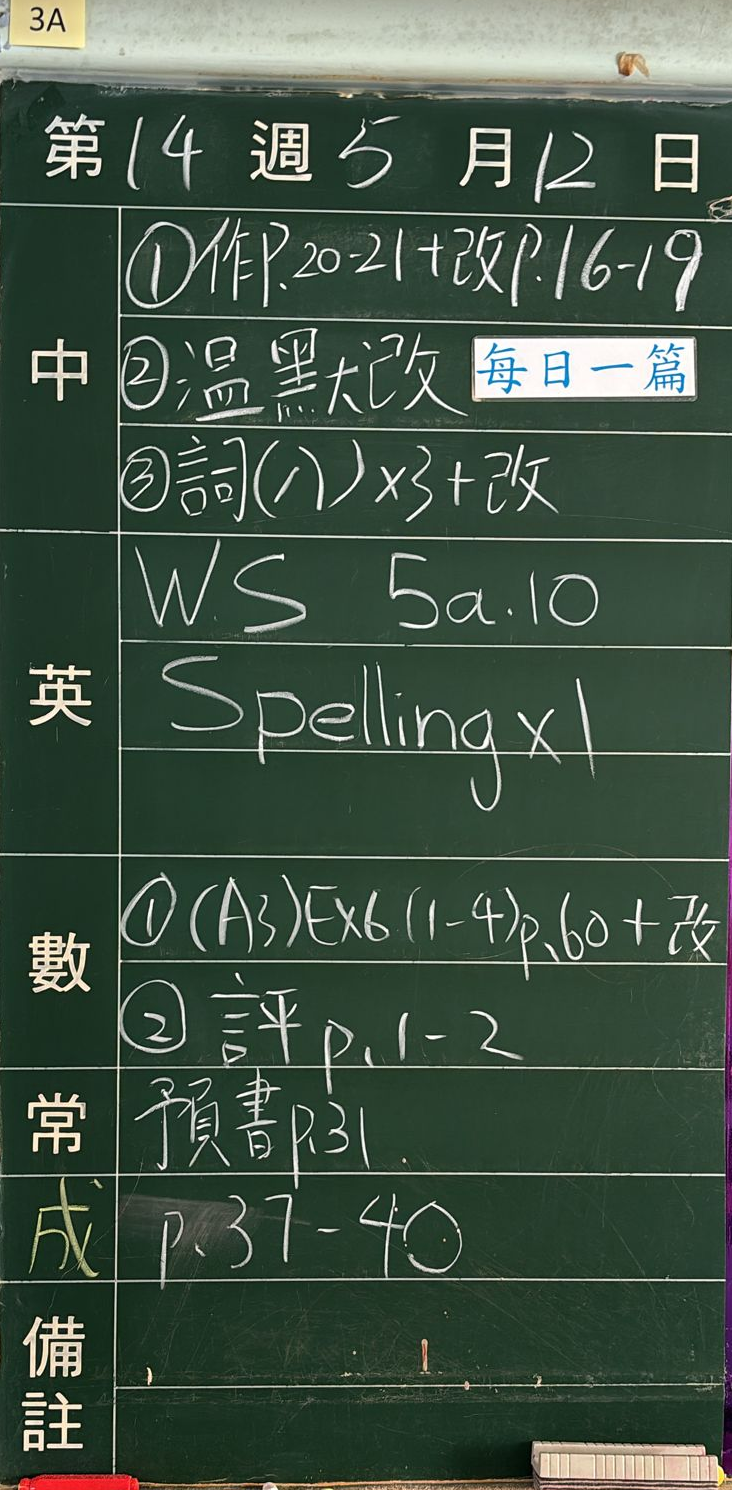 3A
第14週5月12日
中
①作P.20-21+改P.16-19
②溫默改 每日一篇
③詞(八)x3+改
英
W.S 5a.10
Spellingx1
數
①(A3)Ex6(1-4)p.60+改
②評p.1-2
常
預書p.31
成
p.37-40
備註